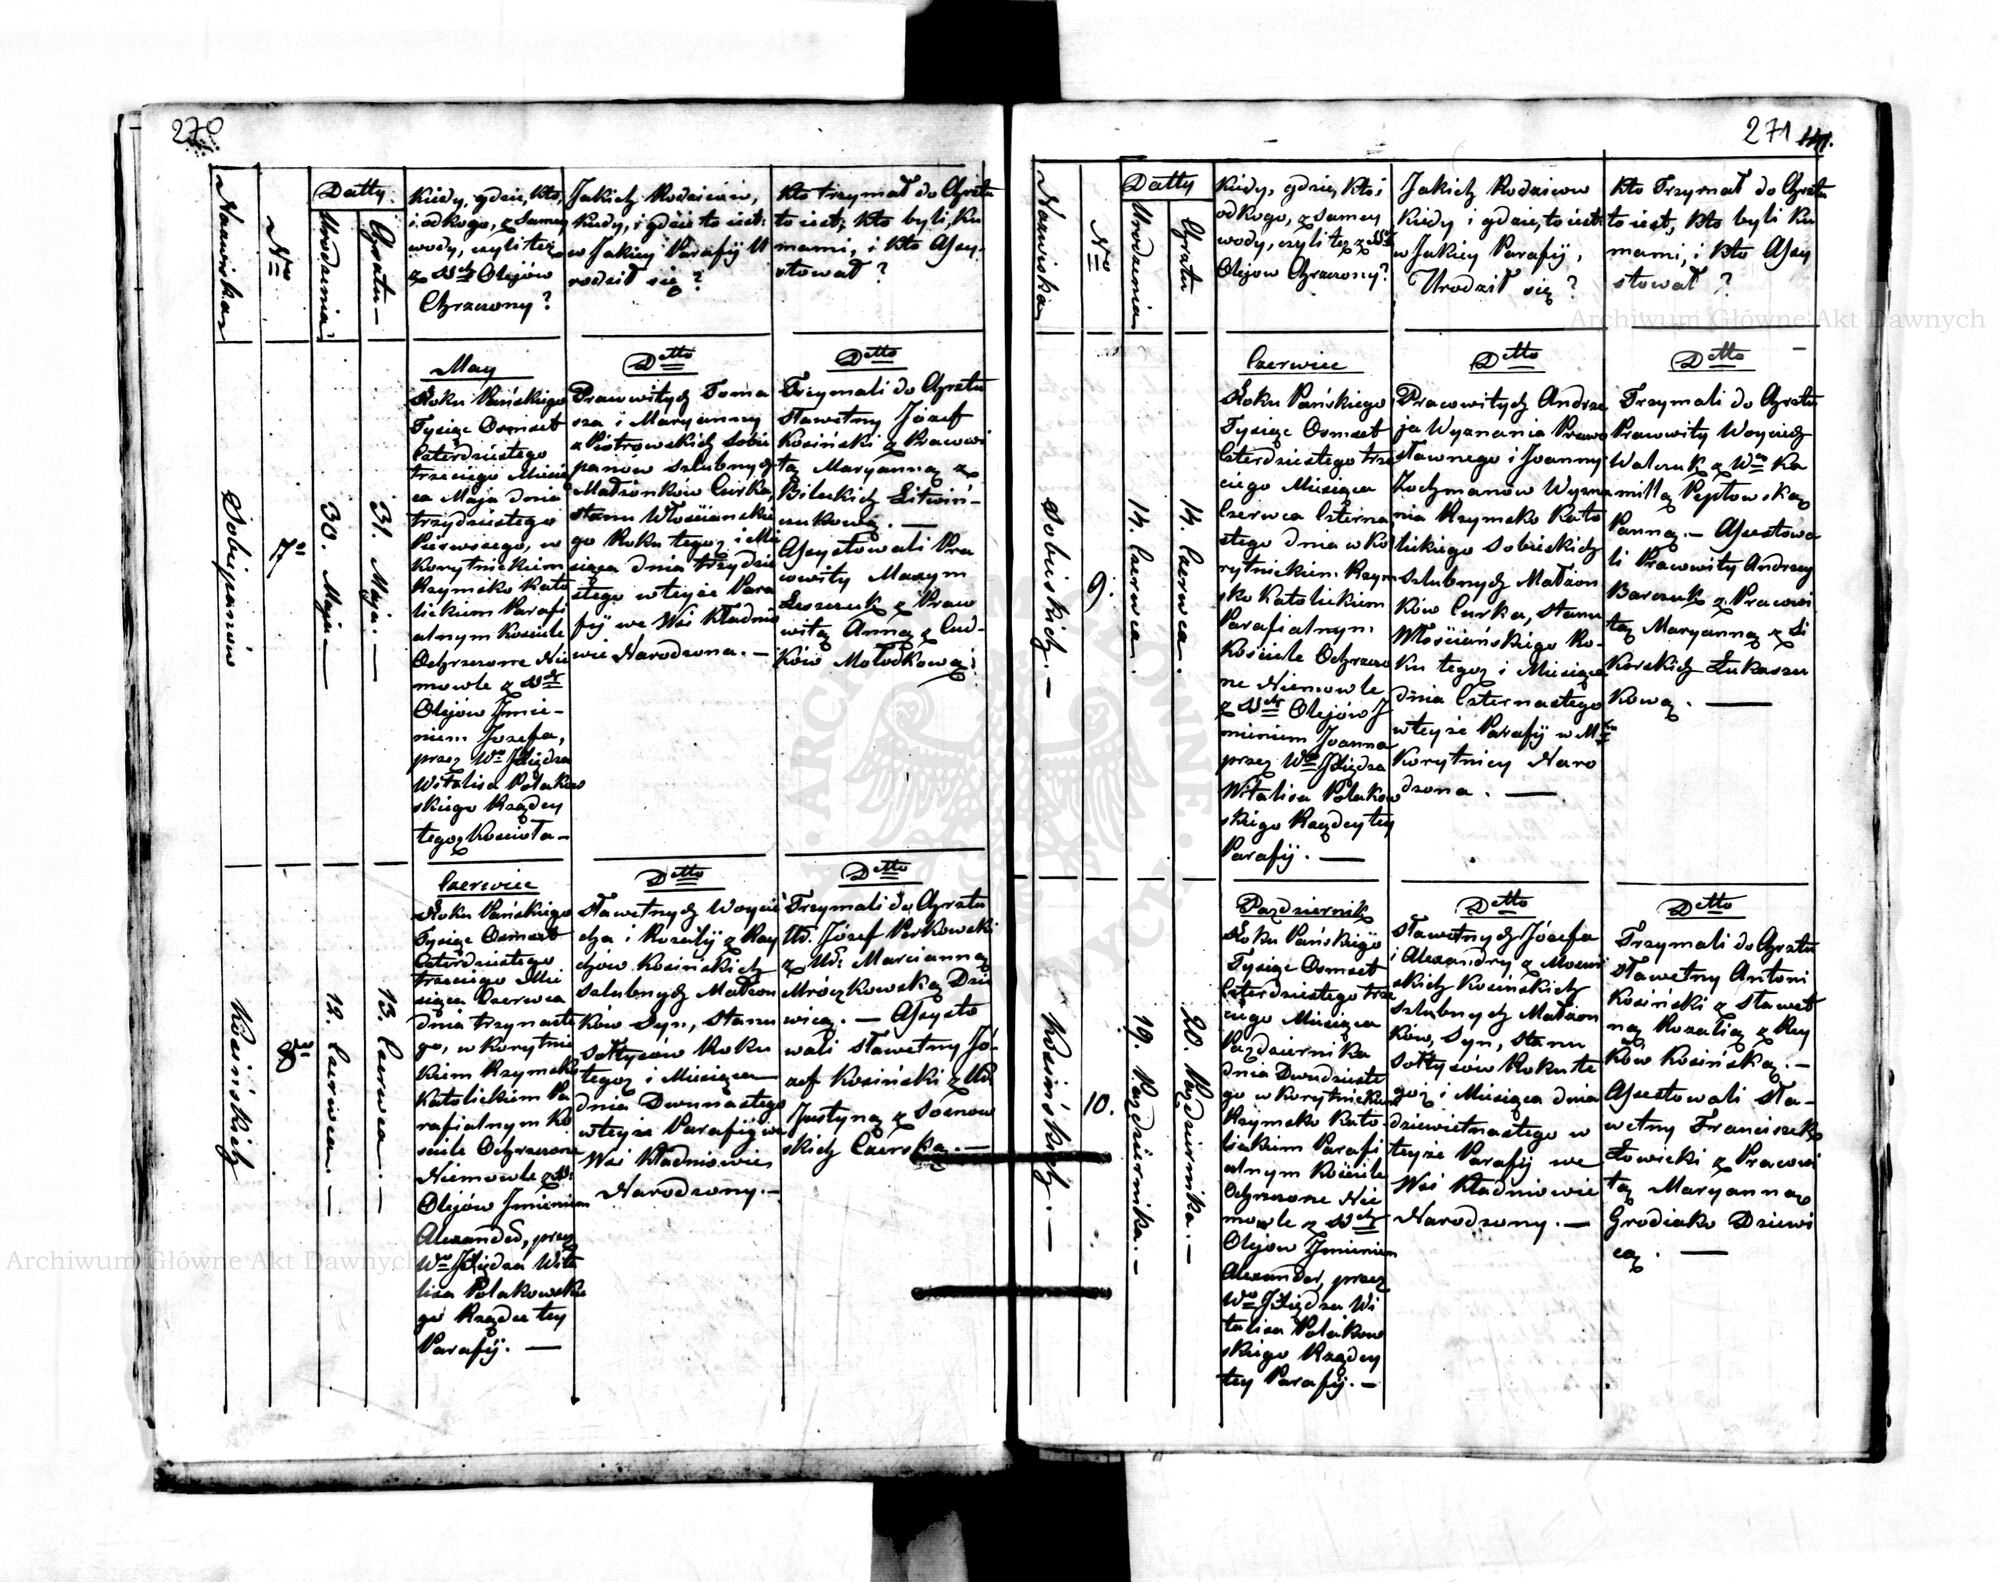 270
Nazwiska
Nro
Datty
Urodzenia
Chrztu
Kiedy, gdzie, kto,
i od kogo, z samey
wody, czyli też
z Stch Olejów
Chrzczony?
Jakich Rodziców,
Kiedy, i gdzie to iest:
w Jakiey Parafij U
rodził się?
Kto trzymał do Chrztu
to iest, kto byli, Ku
mami, i kto Assy-
stował?
Sobijpanów
7o
30. Maja.—
31. Maja.—
May
Roku Pańskiego
Tysiąc Osmset
Czterdziestego
trzeciego Miesią
ca Maja dnia
trzydziestego
Pierwszego, w
Korytnickiem
Rzymsko Kato
lickiem Parafi
alnym Kosciele
Ochrzczone Nie
mowle z Stch
Olejów Jmie-
niem Jozefa,
przez Wo JXiędza
Witalisa Polakow
skiego Rządcy
tegoż Kościoła—
Dtto
Pracowitych Toma
sza i Maryanny
z Piotrowskich Sobij
panow szlubnych
Małżonków Curka,
stanu Włościanskie
go Roku tegoż i Mie
siąca dnia trzydzie
stego w teyże Para
fij we Wsi Kładnio
wie Narodzona.—
Dtto
Trzymali do Chrztu
sławetny Józef
Kosiński z Pracowi
tą Maryanną z
Bileckich Litwiń-
czukową.—
Assystowali Pra
cowity Maxym
Leszczuk z Praw
witą Anną z Cud-
ków Mołodkową.
Kosińskich
8vo
12. Czerwca.—
13. Czerwca.—
Czerwiec
Roku Pańskiego
Tysiąc Osmset
Czterdziestego
trzeciego Mie
siąca Czerwca
dnia trzynaste
go, w Korytnic
kiem Rzymsko
Katolickiem Pa
rafialnym Ko
sciele Ochrzczone
Niemowle z St.
Olejów Jmieniem
Alexander, przez
Wo JXiędza Wita
lisa Polakowskie
go Rządce tey
Parafij.—
Dtto
sławetnych Woycie
cha i Rozalij z Ray
chów Kosińskich
szlubnych Małżon
ków Syn, stanu
sołtysów Roku
tegoż i Miesiąca
dnia Dwunastego
w teyże Parafij we
Wsi Kładniowie
Narodzony.—
Dtto
Trzymali do Chrztu
Ur. Józef Perkowski
z Ur. Marcianną
Mroczkowską Dzie
wicą.— Assysto
wali sławetny Jó-
zef Kosiński z Ur.
Justyną z Sosnow
skich Czerską.—
271 141.
Nazwiska
Nro
Datty
Urodzenia
Chrztu
Kiedy, gdzie, kto i
od kogo, z samey
wody, czyli też z Stch
Olejow Chrzczony?
Jakich Rodzicow
Kiedy i gdzie, to iest:
w Jakiey Parafij,
Urodził się?
Kto Trzymał do Chrztu
to iest, Kto byli Ku
mami, i Kto Assy
stował?
Sobieskich.—
9.
14. Czerwca.
14. Czerwca.
Czerwiec
Roku Pańskiego
Tysiąc Osmset
Czterdziestego trze
ciego Miesiąca
Czerwca Czterna
stego dnia w Ko
rytnickiem Rzym
sko Katolickiem
Parafialnym
Kościele Ochrzczo
ne Niemowle
z Stch Olejów J
mieniem Joanna
przez Wo JXiędza
Witalisa Polakow
skiego Rządcy tey
Parafij.—
Dtto
Pracowitych Andrze
ja Wyznania Prawo
sławnego i Joanny
Zochmanów Wyzna
nia Rzymsko Kato
lickiego Sobieskich
szlubnych Małżon
ków Curka, stanu
Włościańskiego Ro-
ku tegoż i Miesiąca
dnia Czternastego
w teyże Parafij w Mku
Korytnicy Naro
dzona.—
Dtto
Trzymali do Chrztu
Pracowity Woyciech
Walczuk z Wną Ka
millą Peptowską
Panną.— Assestowa
li Pracowity Andrzey
Barczuk z Pracowi
tą Maryanną z Si
korskich Łukaszu
kową.—
Kosińskich.—
10.
19. Października.—
20. Października.—
Pazdziernik
Roku Pańskiego
Tysiąc Osmset
Czterdziestego trze
ciego Miesiąca
Października
dnia Dwudzieste
go w Korytnickiem
Rzymsko Kato
lickiem Parafi
alnym Kościele
Ochrzczone Nie
mowle z Stch
Olejow Jmieniem
Alexander, przez
Wo JXiędza Wi
talisa Polakow
skiego Rządcy
tey Parafij.—
Dtto
sławetnych Józefa
i Alexandry z Moczul
skich Kosińskich
szlubnych Małżon
ków, Syn, Stanu
sołtysów Roku te
goż i Miesiąca dnia
dziewietnastego w
teyże Parafij we
Wsi Kładniowie
Narodzony.—
Dtto
Trzymali do Chrztu
sławetny Antoni
Kosiński z sławet
ną Rozalią z Ray
ków Kosińską.—
Assestowali Sła-
wetny Franciszek
Łowicki z Pracowi
tą Maryanną
Grodiako Dziewi
cą.—
Archiwum Główne Akt Dawnych
Archiwum Główne Akt Dawnych
ARCHIWUM GŁÓWNE AKT DAWNYCH